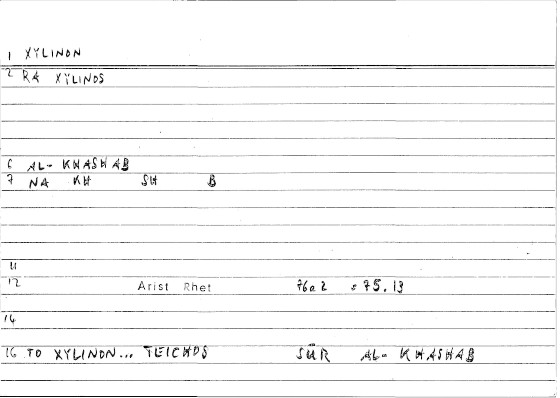 1 XYLINON
2 RA XYLINOS
6 AL- KHASHAB
7 NA KH SH B
11
12 Arist Rhet 76a2 = 75.13
14
16 TO XYLINON... TEICHOS SŪR AL- KHASHAB